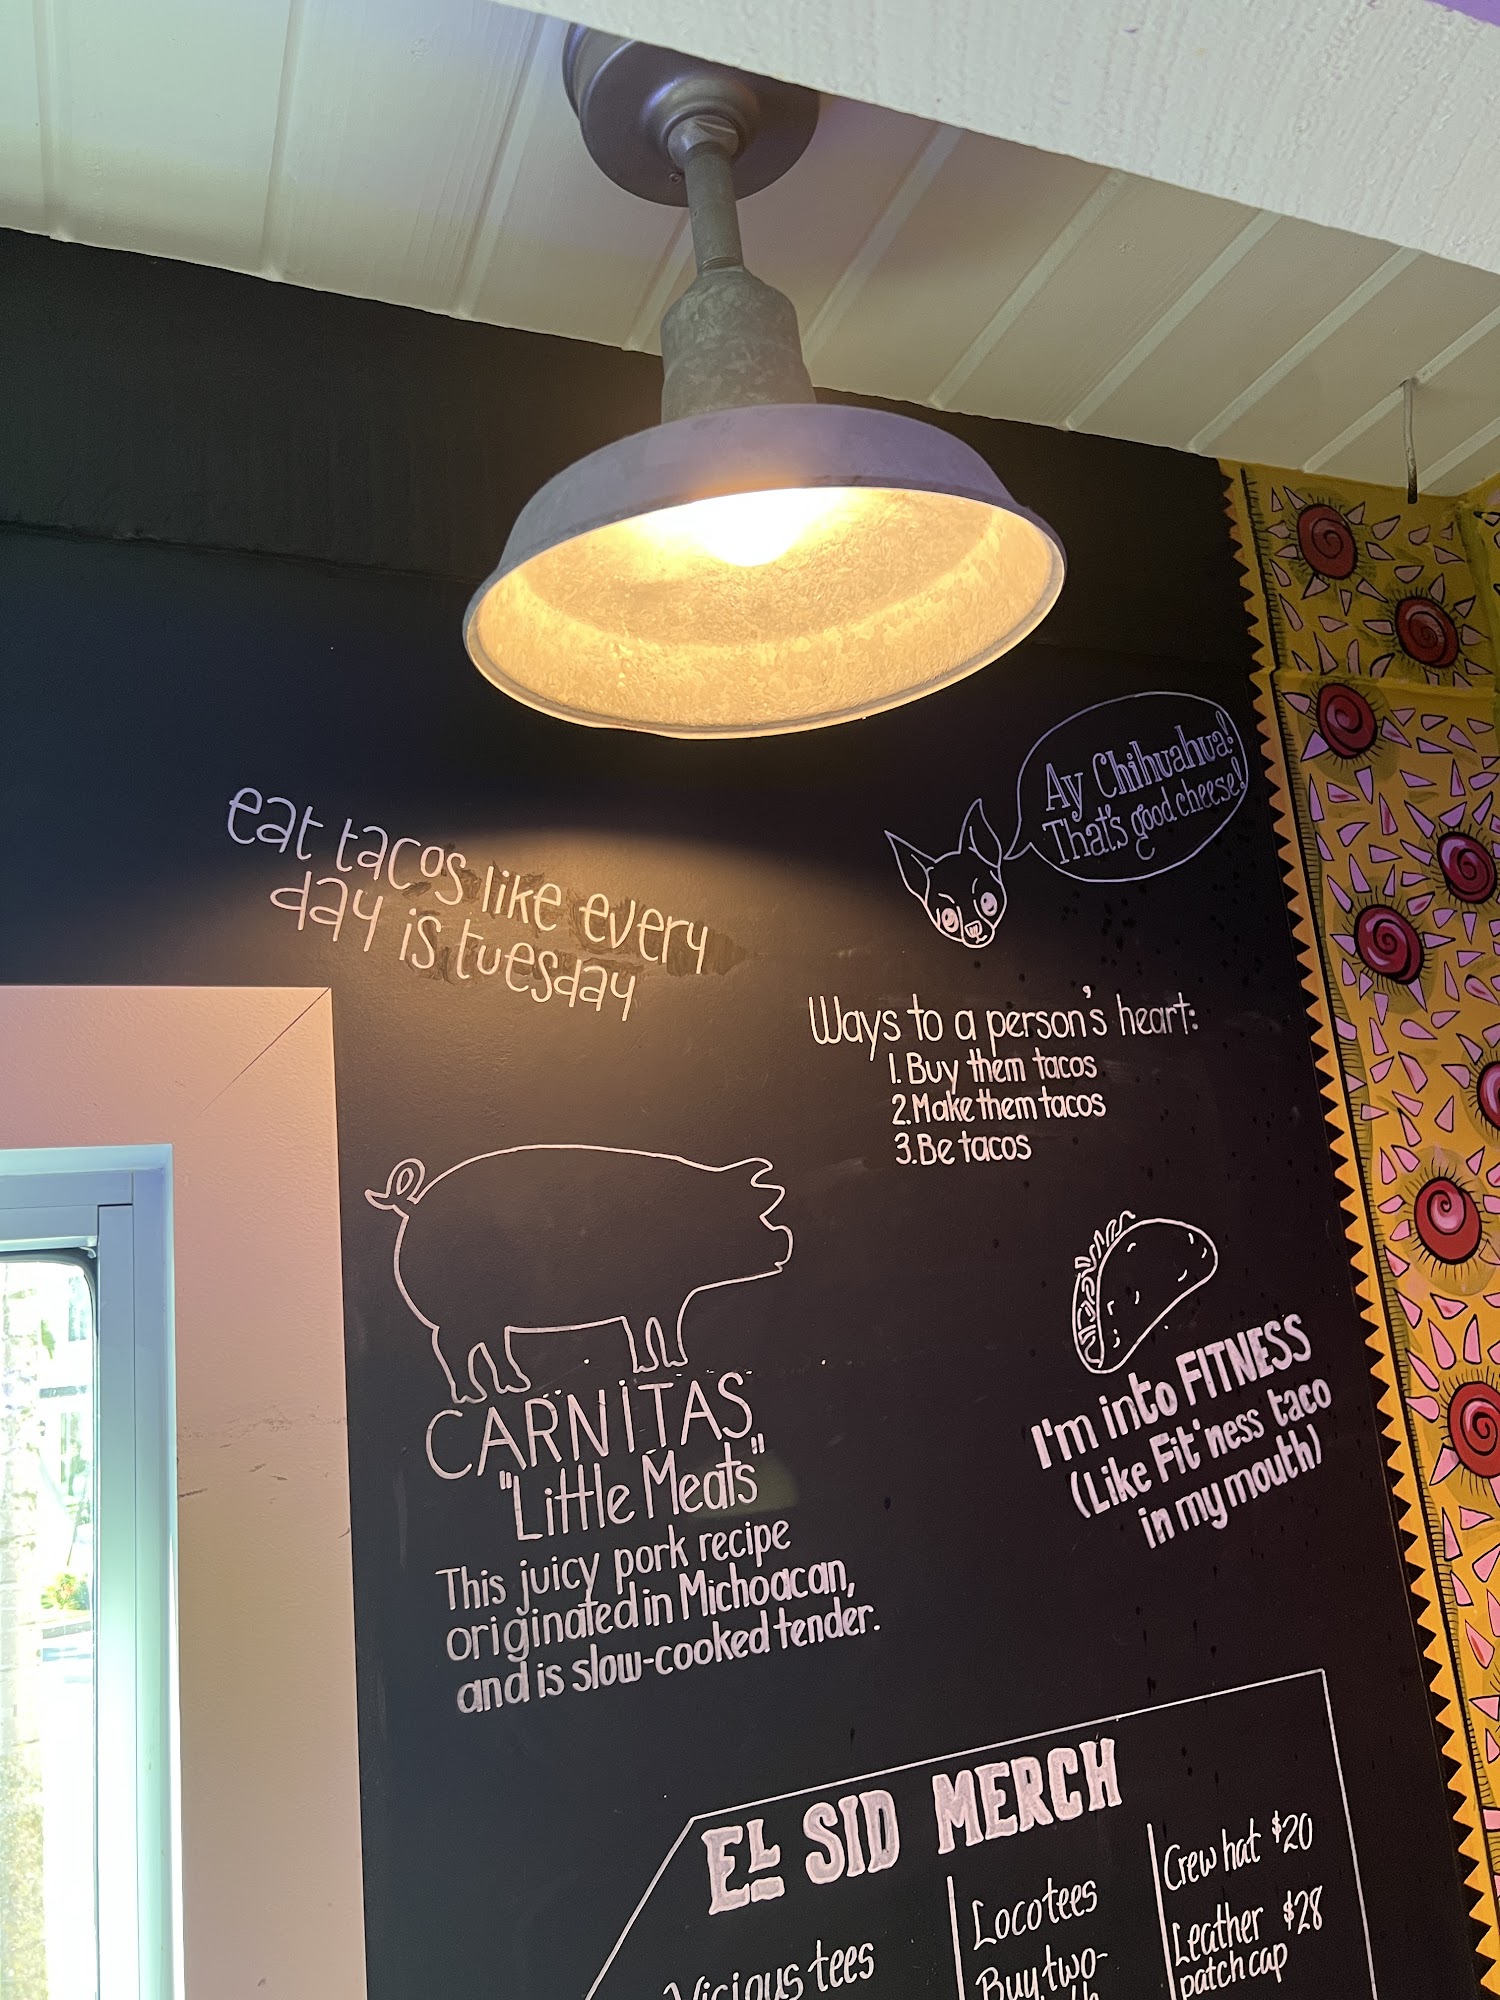 eat tacos like every
day is tuesday
Ay Chihuahua!
That's good cheese!
Ways to a person's heart:
1. Buy them tacos
2. Make them tacos
3. Be tacos
CARNITAS
"Little Meats"
This juicy pork recipe
originated in Michoacan,
and is slow-cooked tender.
I'm into FITNESS
(Like Fit'ness taco
in my mouth)
EL SID MERCH
Vicious tees
Loco tees
Buy two-
Crew hat $20
Leather $28
patch cap